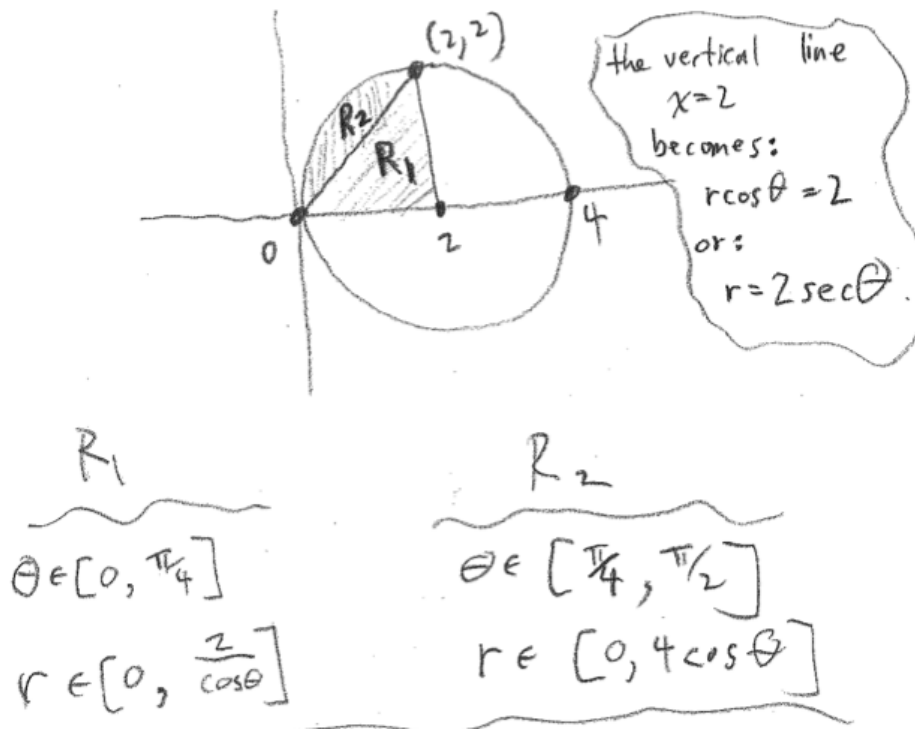 (2,2)
R2
R1
0
2
4
the vertical line
x=2
becomes:
rcosθ=2
or:
r=2secθ.
R1
R2
θ∈[0, π/4]
θ∈[π/4, π/2]
r∈[0, 2/cosθ]
r∈[0, 4cosθ]